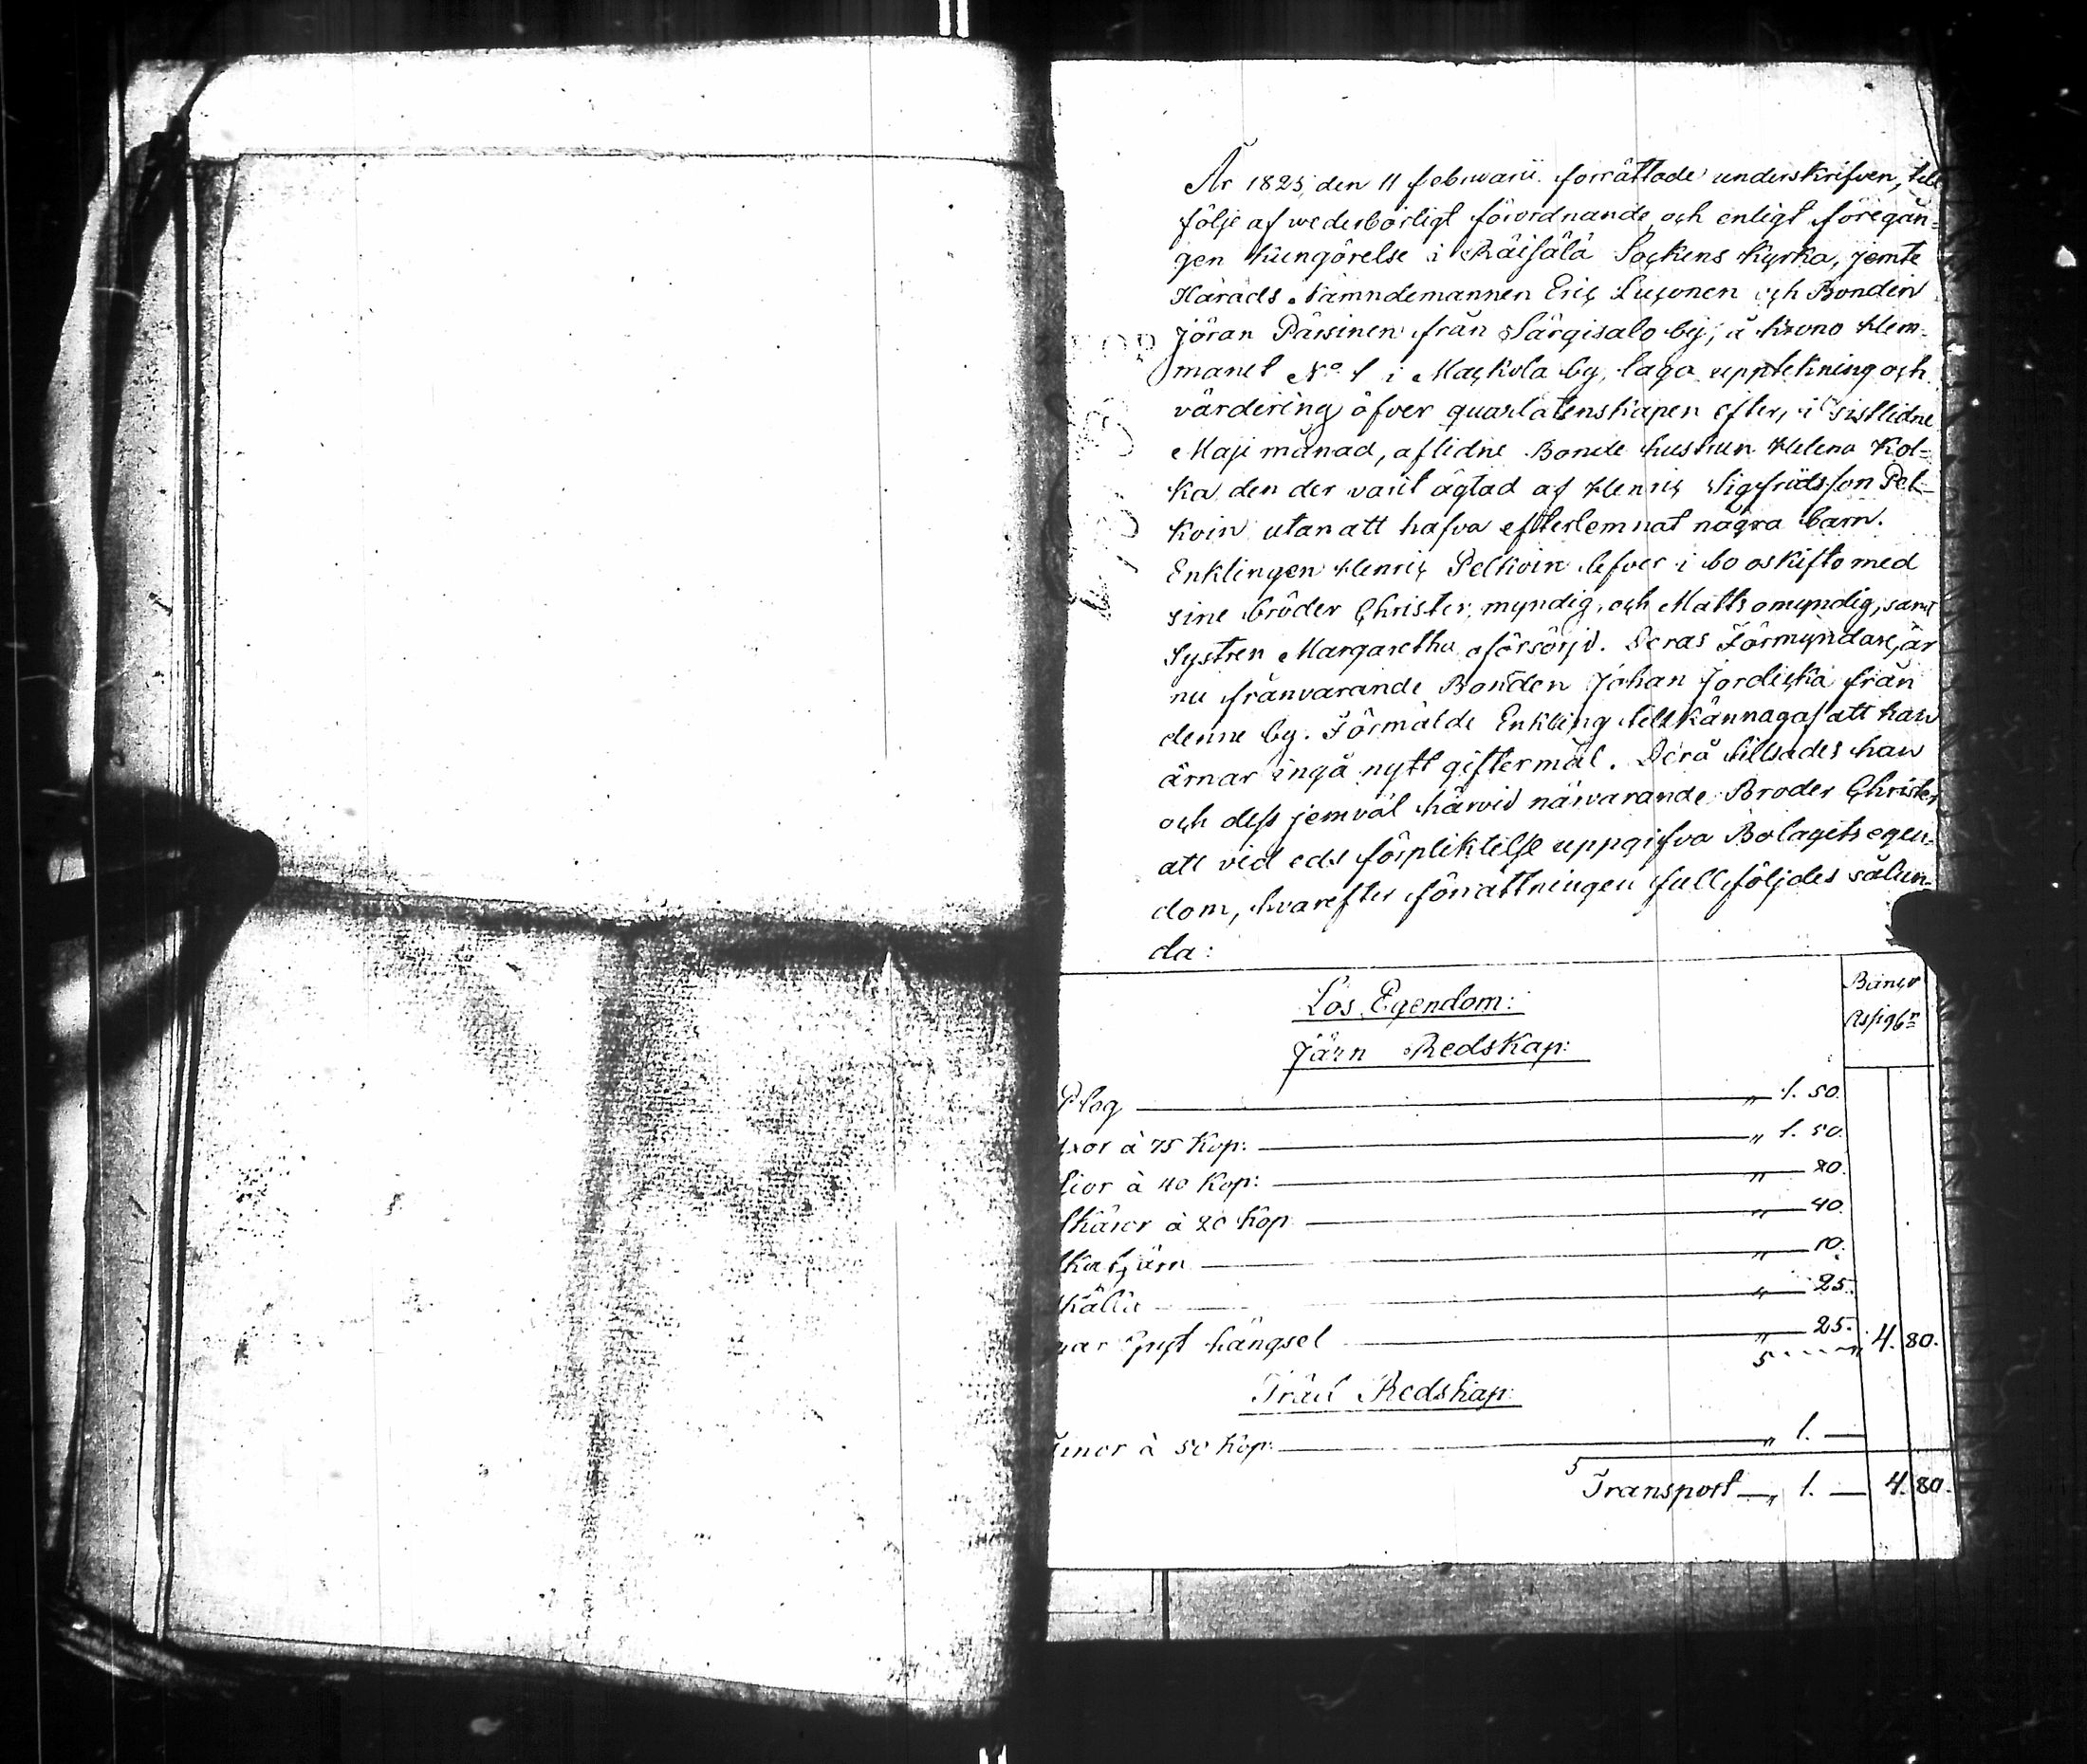 År 1825, den 11 februarii. förrättade underskrifven, till
följe af wederbörligt förordnande och enligt föregån-
gen kungörelse i Räisälä Sockens Kyrka, jemte
Härads Nämndemannen Eric Lusonen och Bonden
Jöran Pärsinen från Särgisalo by, å krono Hem-
manet No 1 i Mackola by, laga uppteckning och
värdering öfver quarlåtenskapen efter, i sistlidne
Maji månad, aflidne Bonde hustrun Helena Kol-
ka, den der varit ägtad af Henric Sigfridsson Pel-
koin utan att hafva efterlemnat några barn.
Enklingen Henric Pelkoin lefver i bo oskifto med
sine bröder Christer, myndig, och Matts omyndig, samt
Systren Margaretha oförsörjd. Deras Förmyndare är
nu frånvarande Bonden Johan Jordicka från
denne by. Förmälde Enkling tillkännagaf att han
ärnar ingå nytt giftermål. Derå tillsades han
och dess jemväl härvid närvarande Broder Christer
att vid eds förpliktelse uppgifva Bolagets egen-
dom, hvarefter förrättningen fullföljdes sålun-
da:
Banco
Assigbr
Lös Egendom:
Järn Redskap:
Plog — „ 1. 50.
xor à 75 Kop: — „ 1. 50.
Lior à 40 Kop: — „ 80.
Skäror à 20 Kop — „ 40.
järn — „ 10.
„ 25.
par hängsel — „ 25. 4. 80.
Träd Redskap:
à 50 Kop: — „ 1. —
Transport — „ 1. — 4. 80.